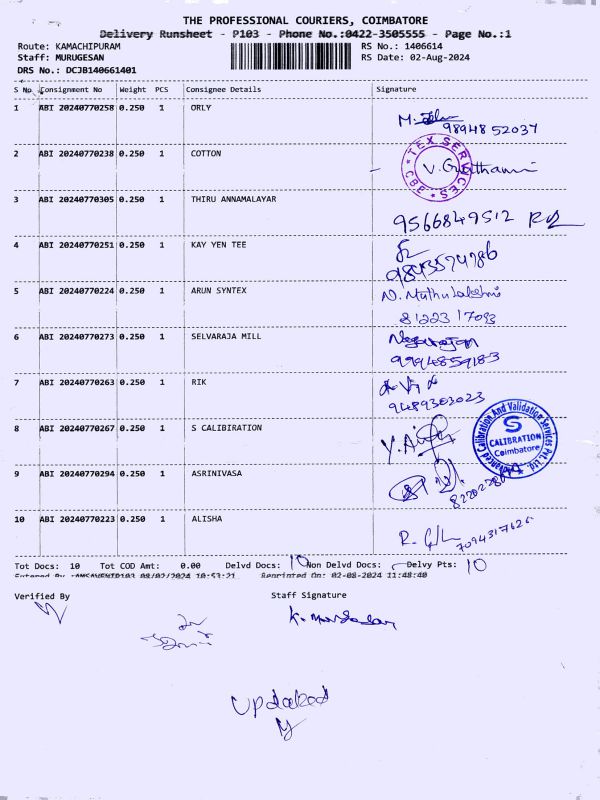 THE PROFESSIONAL COURIERS, COIMBATORE
Delivery Runsheet - P103 - Phone No.:0422-3505555 - Page No.:1
Route: KAMACHIPURAM RS No.: 1406614
Staff: MURUGESAN RS Date: 02-Aug-2024
DRS No.: DCJB140661401
S No Consignment No Weight PCS Consignee Details Signature
1 ABI 20240770258 0.250 1 ORLY
98948 52037
2 ABI 20240770238 0.250 1 COTTON
TEX SERVICES CBE
3 ABI 20240770305 0.250 1 THIRU ANNAMALAYAR
9566849512
4 ABI 20240770251 0.250 1 KAY YEN TEE
5 ABI 20240770224 0.250 1 ARUN SYNTEX
N. Muthulakshmi
6 ABI 20240770273 0.250 1 SELVARAJA MILL
Nagarajan
9994859183
7 ABI 20240770263 0.250 1 RIK
9489303023
8 ABI 20240770267 0.250 1 S CALIBIRATION
Advanced Calibration And Validation Services Pvt. Ltd.
S
CALIBRATION
Coimbatore
9 ABI 20240770294 0.250 1 ASRINIVASA
10 ABI 20240770223 0.250 1 ALISHA
Tot Docs: 10 Tot COD Amt: 0.00 Delvd Docs: 10 Non Delvd Docs: Delvy Pts: 10
08/02/2024 10:53:21 Reprinted On: 02-08-2024 11:48:40
Verified By Staff Signature
Updated